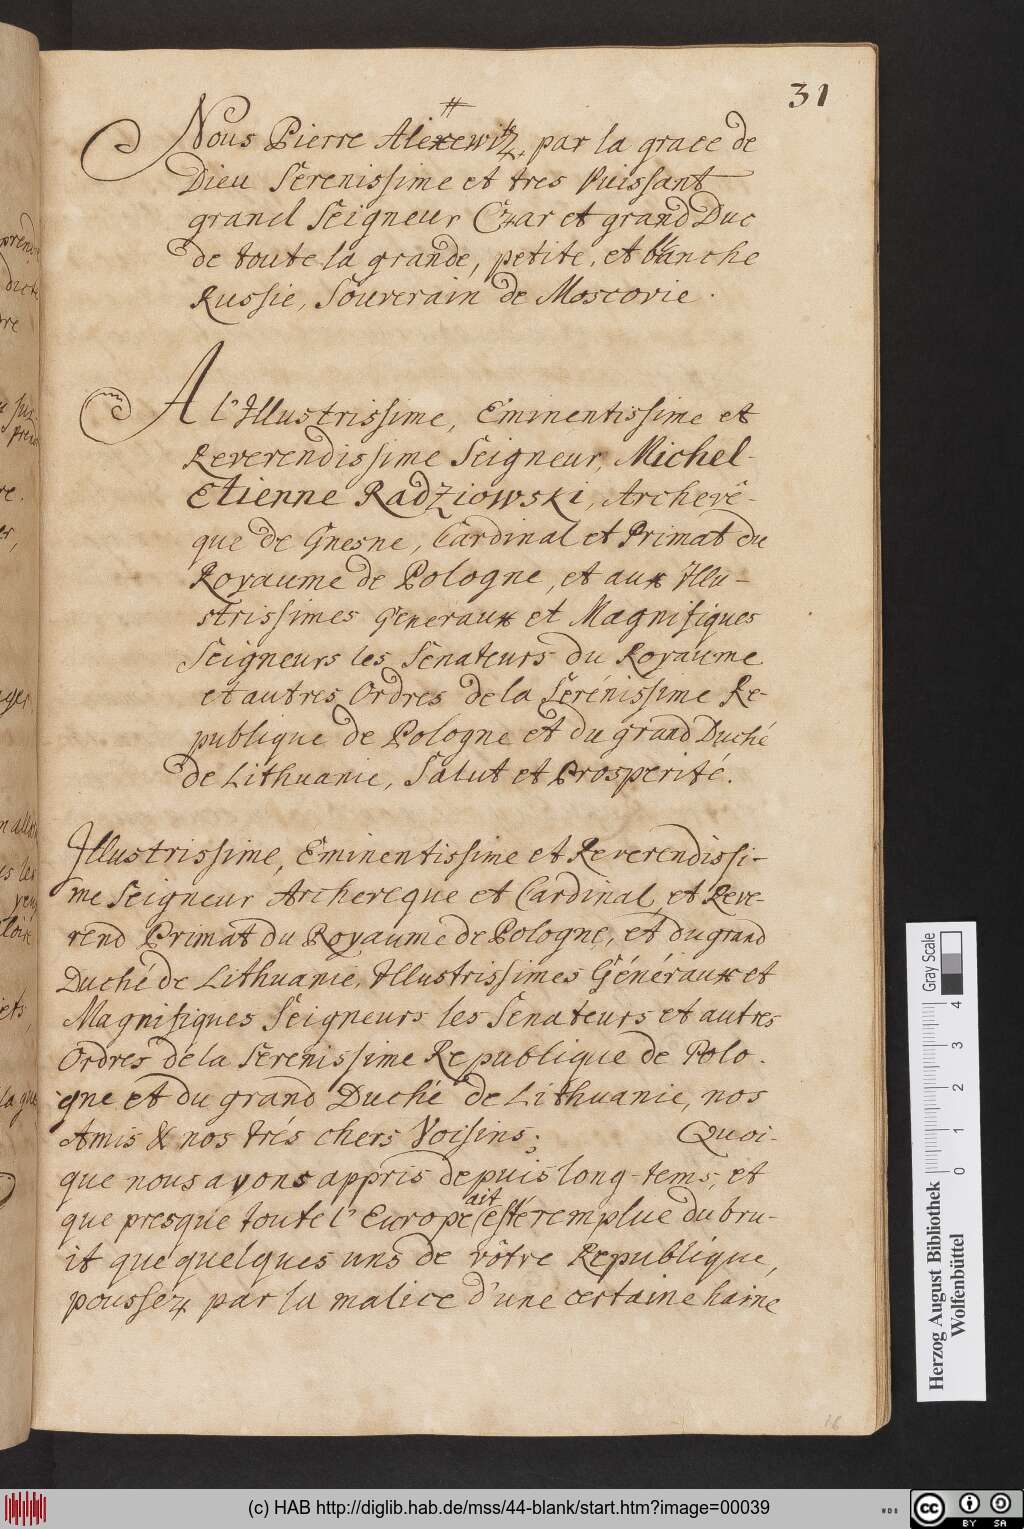 31
Nous Pierre Alexewitz, par la grace de
Dieu Serenissime et tres Puissant
grand Seigneur Czar et grand Duc
de toute la grande, petite, et blanche
Russie, Souverain de Moscovie.
A l'Illustrissime, Eminentissime et
Reverendissime Seigneur, Michel-
Etienne Radziowski, Archevê-
que de Gnesne, Cardinal et Primat du
Royaume de Pologne, et aux Illu-
strissimes Generaux et Magnifiques
Seigneurs les Senateurs du Royaume
et autres Ordres de la Serénissime Re-
publique de Pologne et du grand Duché
de Lithuanie, Salut et Prosperité.
Illustrissime, Eminentissime et Reverendissi-
me Seigneur Archeveque et Cardinal, et Reve-
rend Primat du Royaume de Pologne, et du grand
Duché de Lithuanie, Illustrissimes Généraux et
Magnifiques Seigneurs les Senateurs et autres
Ordres de la Serenissime Republique de Polo-
gne et du grand Duché de Lithuanie, nos
Amis & nos trés chers Voisins; Quoi-
que nous ayons appris depuis long-tems, et
que presque toute l'Europe ait esté remplue du bru-
it que quelques uns de vôtre Republique,
poussez par la malice d'une certaine haine
16
Herzog August Bibliothek
Wolfenbüttel
Gray Scale
0 1 2 3 4
(c) HAB http://diglib.hab.de/mss/44-blank/start.htm?image=00039
WDB
cc BY SA